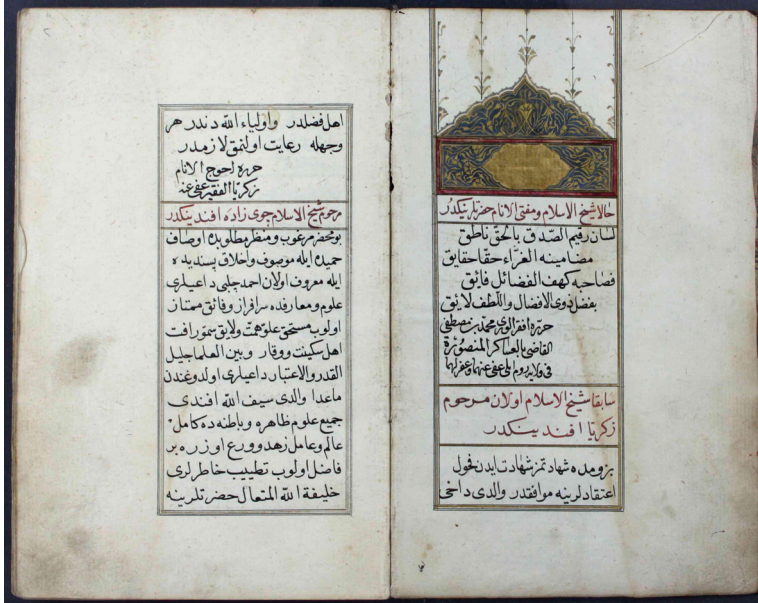 حالا شيخ الاسلام ومفتى الانام حضرتلرينكدر
لسان رقيم الصدق بالحق ناطق
مضامينه الغراء حقا حقايق
فصاحبه كهف الفضائل فائق
بفضل ذوى الافضال واللطف لايق
حرره افقر الورى محمد بن مصطفى
القاضى بالعساكر المنصورة
فى ولايه روم ايلى عفى عنهما وغفر لهما
سابقا شيخ الاسلام اولان مرحوم
زكريا افندينكدر
بزومده شهادتمز شهادت ايدن فحول
اعتقادلرينه موافقدر والدى داخى
اهل فضلدر واولياء الله دندر هر
وجهله رعايت اولنمق لازمدر
حرره احوج الانام
زكريا الفقير عفى عنه
مرحوم شيخ الاسلام جوى زاده افندينكدر
بو محضر مرغوب ومنظر مطلوبده اوصاف
حميده ايله موصوف واخلاق پسنديده
ايله معروف اولان احمد چلبى داعيلرى
علوم ومعارفده سرافراز وفائق ممتاز
اولوب مستحق علو همت ولايق سمو رافت
اهل سكينت ووقار وبين العلما جليل
القدر والاعتبار داعيلرى اولدوغندن
ماعدا والدى سيف الله افندى
جميع علوم ظاهره وباطنه ده كامل
عالم وعامل زهد وورع اوزره بر
فاضل اولوب تطييب خاطرلرى
خليفة الله المتعال حضرتلرينه